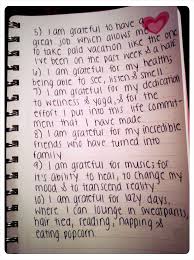 5) I am grateful to have a
great job which allows me
to take paid vacation like the one
I've been on the past week & a half
6) I am grateful for my healthy
being able to see, listen & smell
7) I am grateful for my dedication
to wellness & yoga, & for the
effort I put into this life commit-
ment that I have made.
8) I am grateful for my incredible
friends who have turned into
family.
9) I am grateful for music; for
it's ability to heal, to change my
mood & to transcend reality
10) I am grateful for lazy days,
where I can lounge in sweatpants,
hair tied, reading, napping &
eating popcorn.